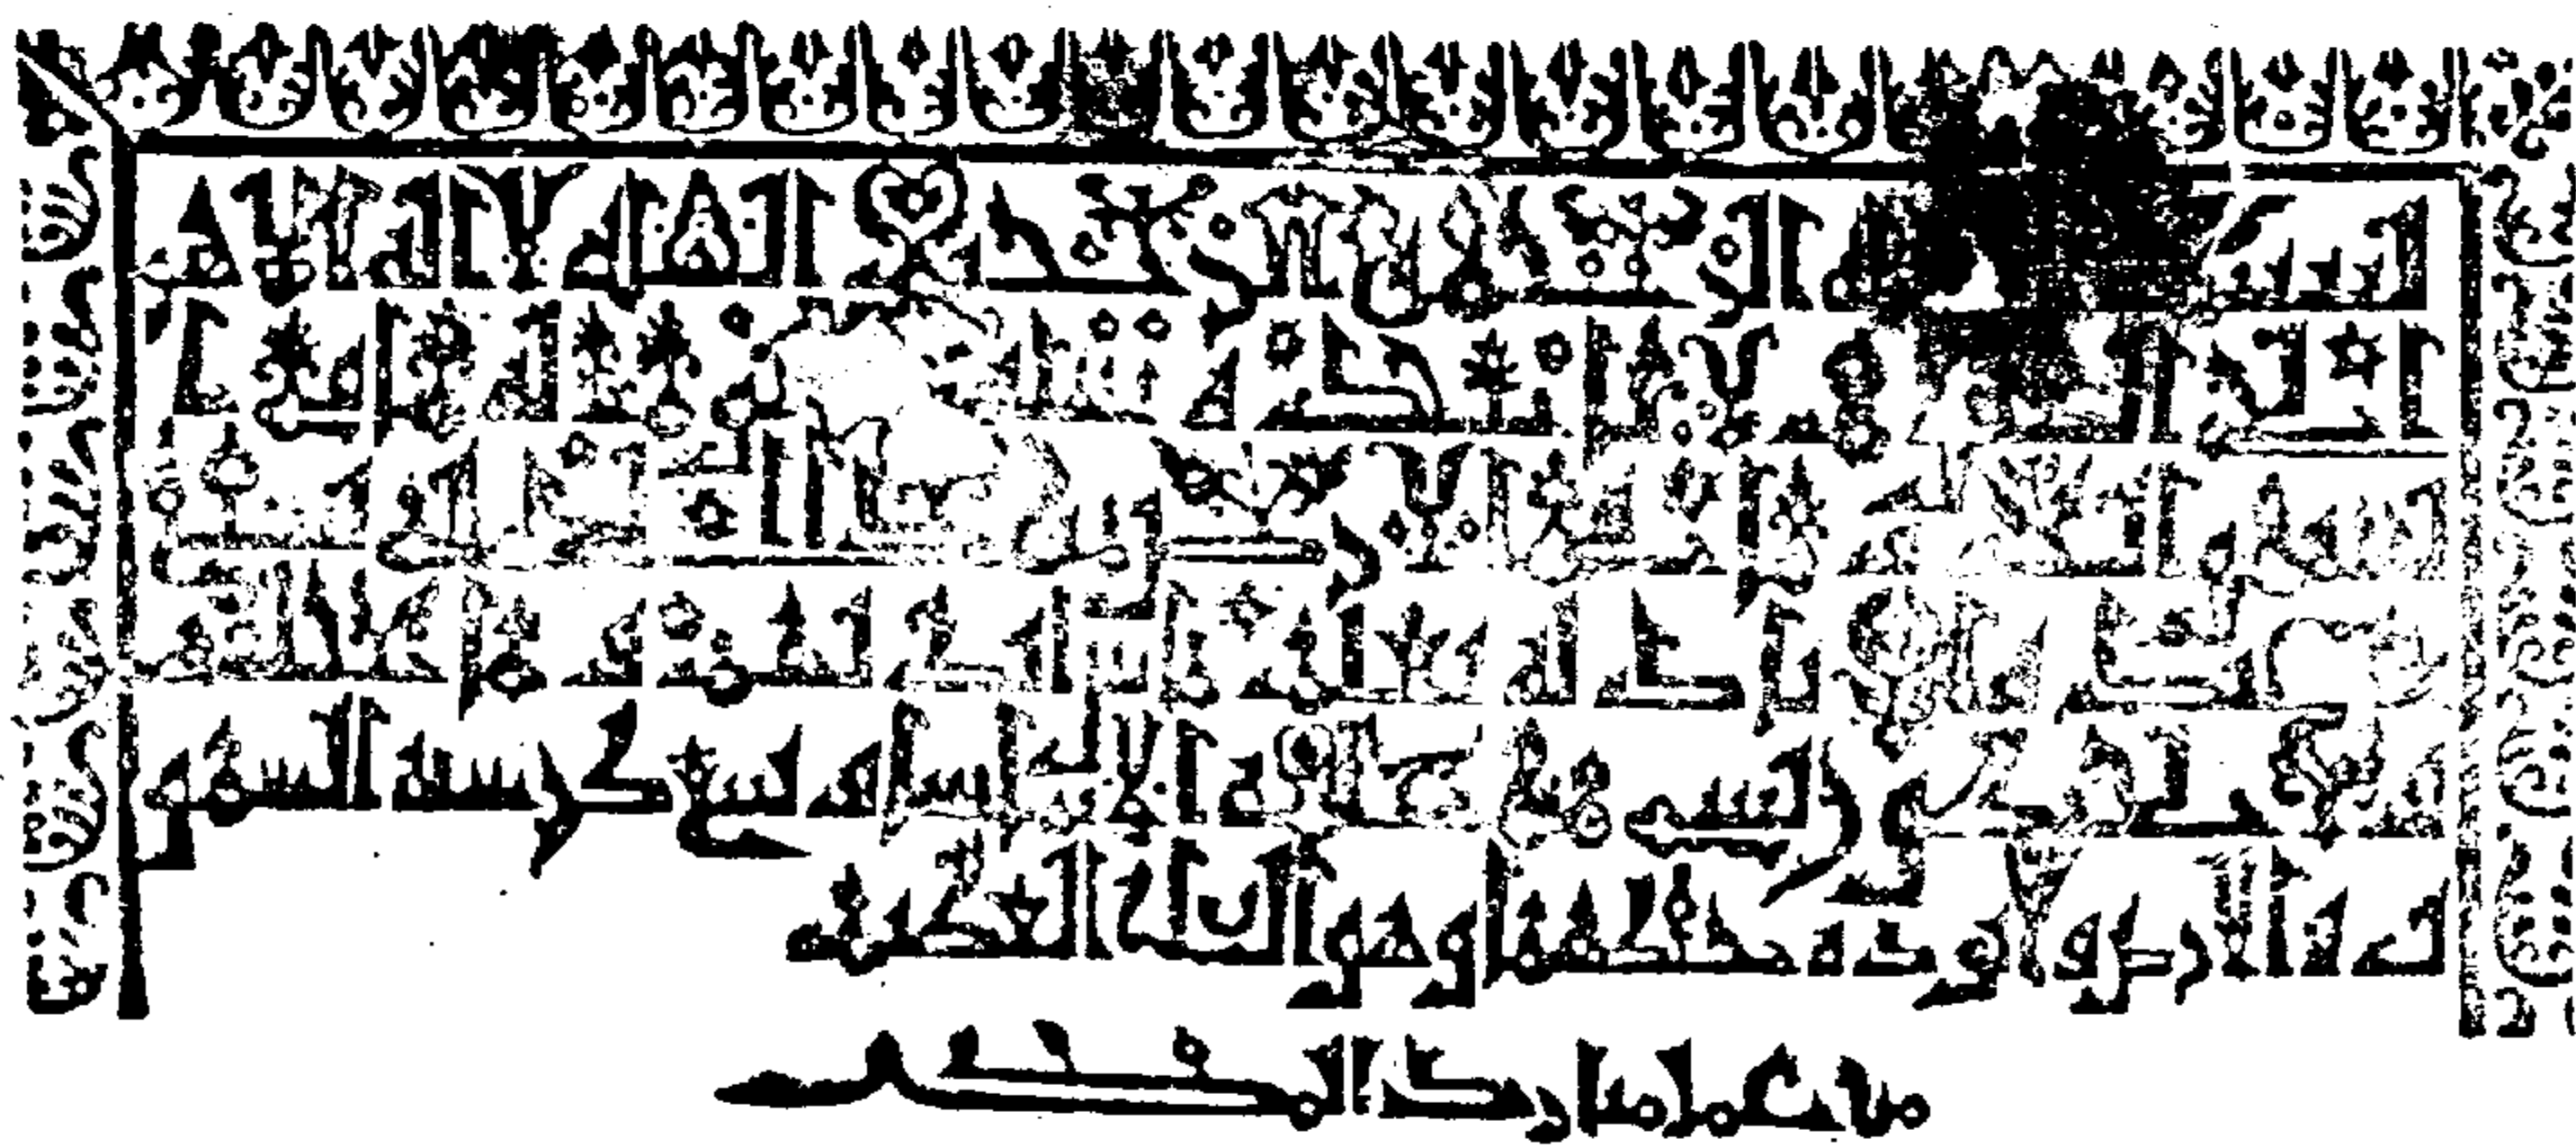 بسم الله الرحمن الرحيم الله لا اله الا هو
الحي القيوم لا تاخذه سنة ولا نوم له ما في ا
لسموت وما في الارض من ذا الذي يشفع عند
ه الا باذنه يعلم ما بين ايديهم وما خلفهم
ولا يحيطون بشي من علمه الا بما شا وسع كرسيه السمو
ت والارض ولا يوده حفظهما وهو العلي العظيم
من عمل مبارك المكي